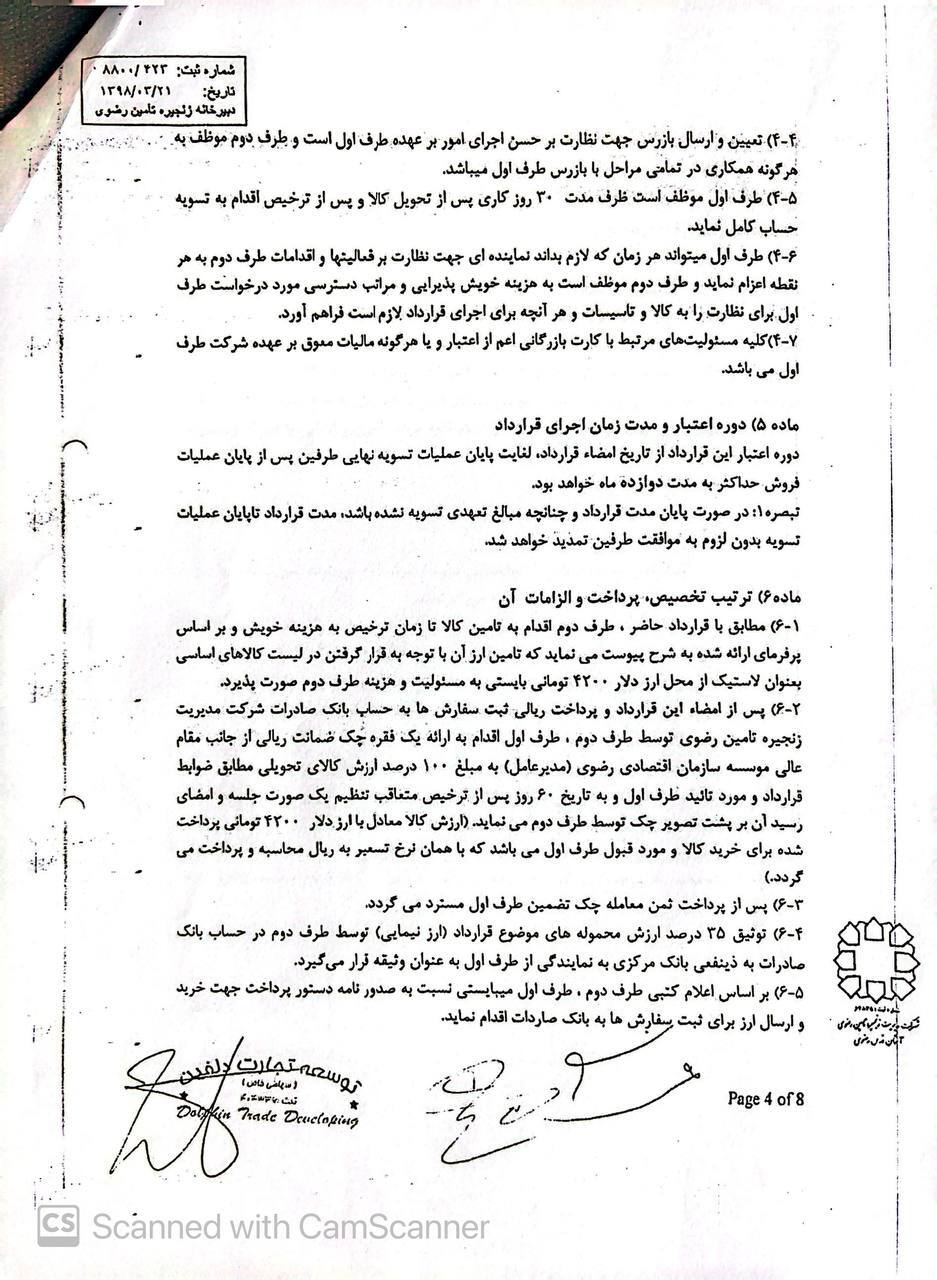 شماره ثبت: ۸۸۰۰/۴۲۳
تاریخ: ۱۳۹۸/۰۳/۲۱
دبیرخانه زنجیره تامین رضوی
۴-۴) تعیین و ارسال بازرس جهت نظارت بر حسن اجرای امور بر عهده طرف اول است و طرف دوم موظف به
هرگونه همکاری در تمامی مراحل با بازرس طرف اول میباشد.
۴-۵) طرف اول موظف است ظرف مدت ۳۰ روز کاری پس از تحویل کالا و پس از ترخیص اقدام به تسویه
حساب کامل نماید.
۴-۶) طرف اول میتواند هر زمان که لازم بداند نماینده ای جهت نظارت بر فعالیتها و اقدامات طرف دوم به هر
نقطه اعزام نماید و طرف دوم موظف است به هزینه خویش پذیرایی و مراتب دسترسی مورد درخواست طرف
اول برای نظارت را به کالا و تاسیسات و هر آنچه برای اجرای قرارداد لازم است فراهم آورد.
۴-۷)کلیه مسئولیت‌های مرتبط با کارت بازرگانی اعم از اعتبار و یا هرگونه مالیات معوق بر عهده شرکت طرف
اول می باشد.
ماده ۵) دوره اعتبار و مدت زمان اجرای قرارداد
دوره اعتبار این قرارداد از تاریخ امضاء قرارداد، لغایت پایان عملیات تسویه نهایی طرفین پس از پایان عملیات
فروش حداکثر به مدت دوازده ماه خواهد بود.
تبصره۱: در صورت پایان مدت قرارداد و چنانچه مبالغ تعهدی تسویه نشده باشد، مدت قرارداد تاپایان عملیات
تسویه بدون لزوم به موافقت طرفین تمدید خواهد شد.
ماده۶) ترتیب تخصیص، پرداخت و الزامات آن
۶-۱) مطابق با قرارداد حاضر ، طرف دوم اقدام به تامین کالا تا زمان ترخیص به هزینه خویش و بر اساس
پرفرمای ارائه شده به شرح پیوست می نماید که تامین ارز آن با توجه به قرار گرفتن در لیست کالاهای اساسی
بعنوان لاستیک از محل ارز دلار ۴۲۰۰ تومانی بایستی به مسئولیت و هزینه طرف دوم صورت پذیرد.
۶-۲) پس از امضاء این قرارداد و پرداخت ریالی ثبت سفارش ها به حساب بانک صادرات شرکت مدیریت
زنجیره تامین رضوی توسط طرف دوم ، طرف اول اقدام به ارائه یک فقره چک ضمانت ریالی از جانب مقام
عالی موسسه سازمان اقتصادی رضوی (مدیرعامل) به مبلغ ۱۰۰ درصد ارزش کالای تحویلی مطابق ضوابط
قرارداد و مورد تائید طرف اول و به تاریخ ۶۰ روز پس از ترخیص متعاقب تنظیم یک صورت جلسه و امضای
رسید آن بر پشت تصویر چک توسط طرف دوم می نماید. (ارزش کالا معادل با ارز دلار ۴۲۰۰ تومانی پرداخت
شده برای خرید کالا و مورد قبول طرف اول می باشد که با همان نرخ تسعیر به ریال محاسبه و پرداخت می
گردد.)
۶-۳) پس از پرداخت ثمن معامله چک تضمین طرف اول مسترد می گردد.
۶-۴) توثیق ۳۵ درصد ارزش محموله های موضوع قرارداد (ارز نیمایی) توسط طرف دوم در حساب بانک
صادرات به ذینفعی بانک مرکزی به نمایندگی از طرف اول به عنوان وثیقه قرار می‌گیرد.
۶-۵) بر اساس اعلام کتبی طرف دوم ، طرف اول میبایستی نسبت به صدور نامه دستور پرداخت جهت خرید
و ارسال ارز برای ثبت سفارش ها به بانک صاردات اقدام نماید.
شرکت مدیریت زنجیره تامین رضوی
آستان قدس رضوی
توسعه تجارت دلفین
(سهامی خاص)
Dolphin Trade Developing
Page 4 of 8
CS Scanned with CamScanner